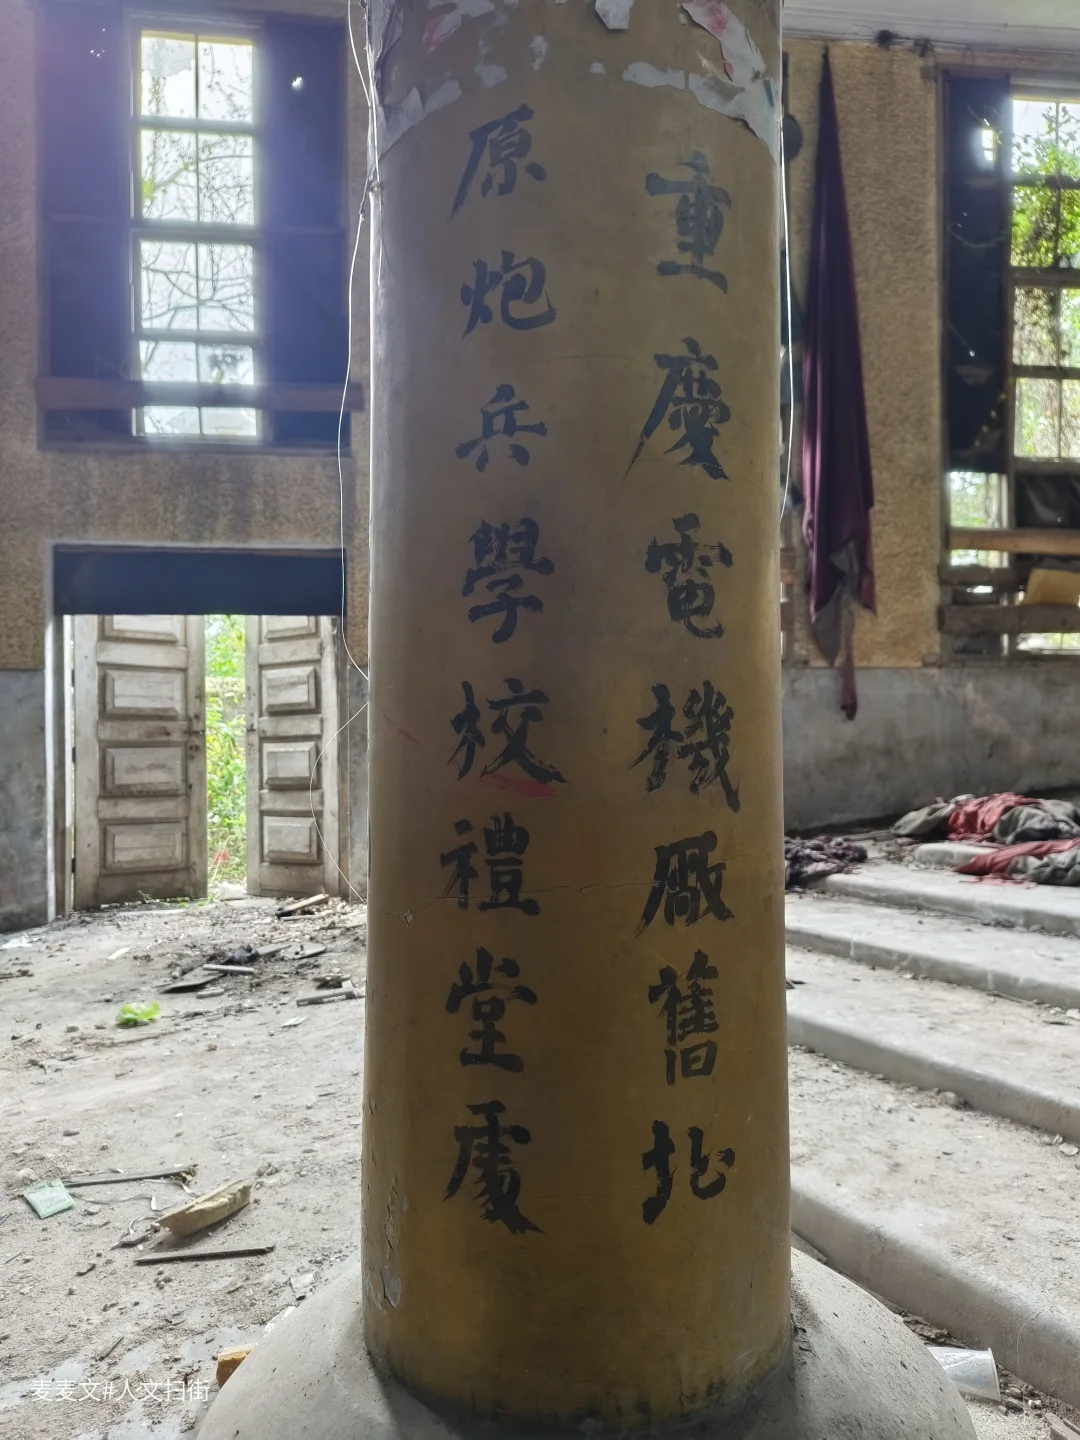 重慶電機廠舊址
原炮兵學校禮堂處
麦麦文#人文扫街